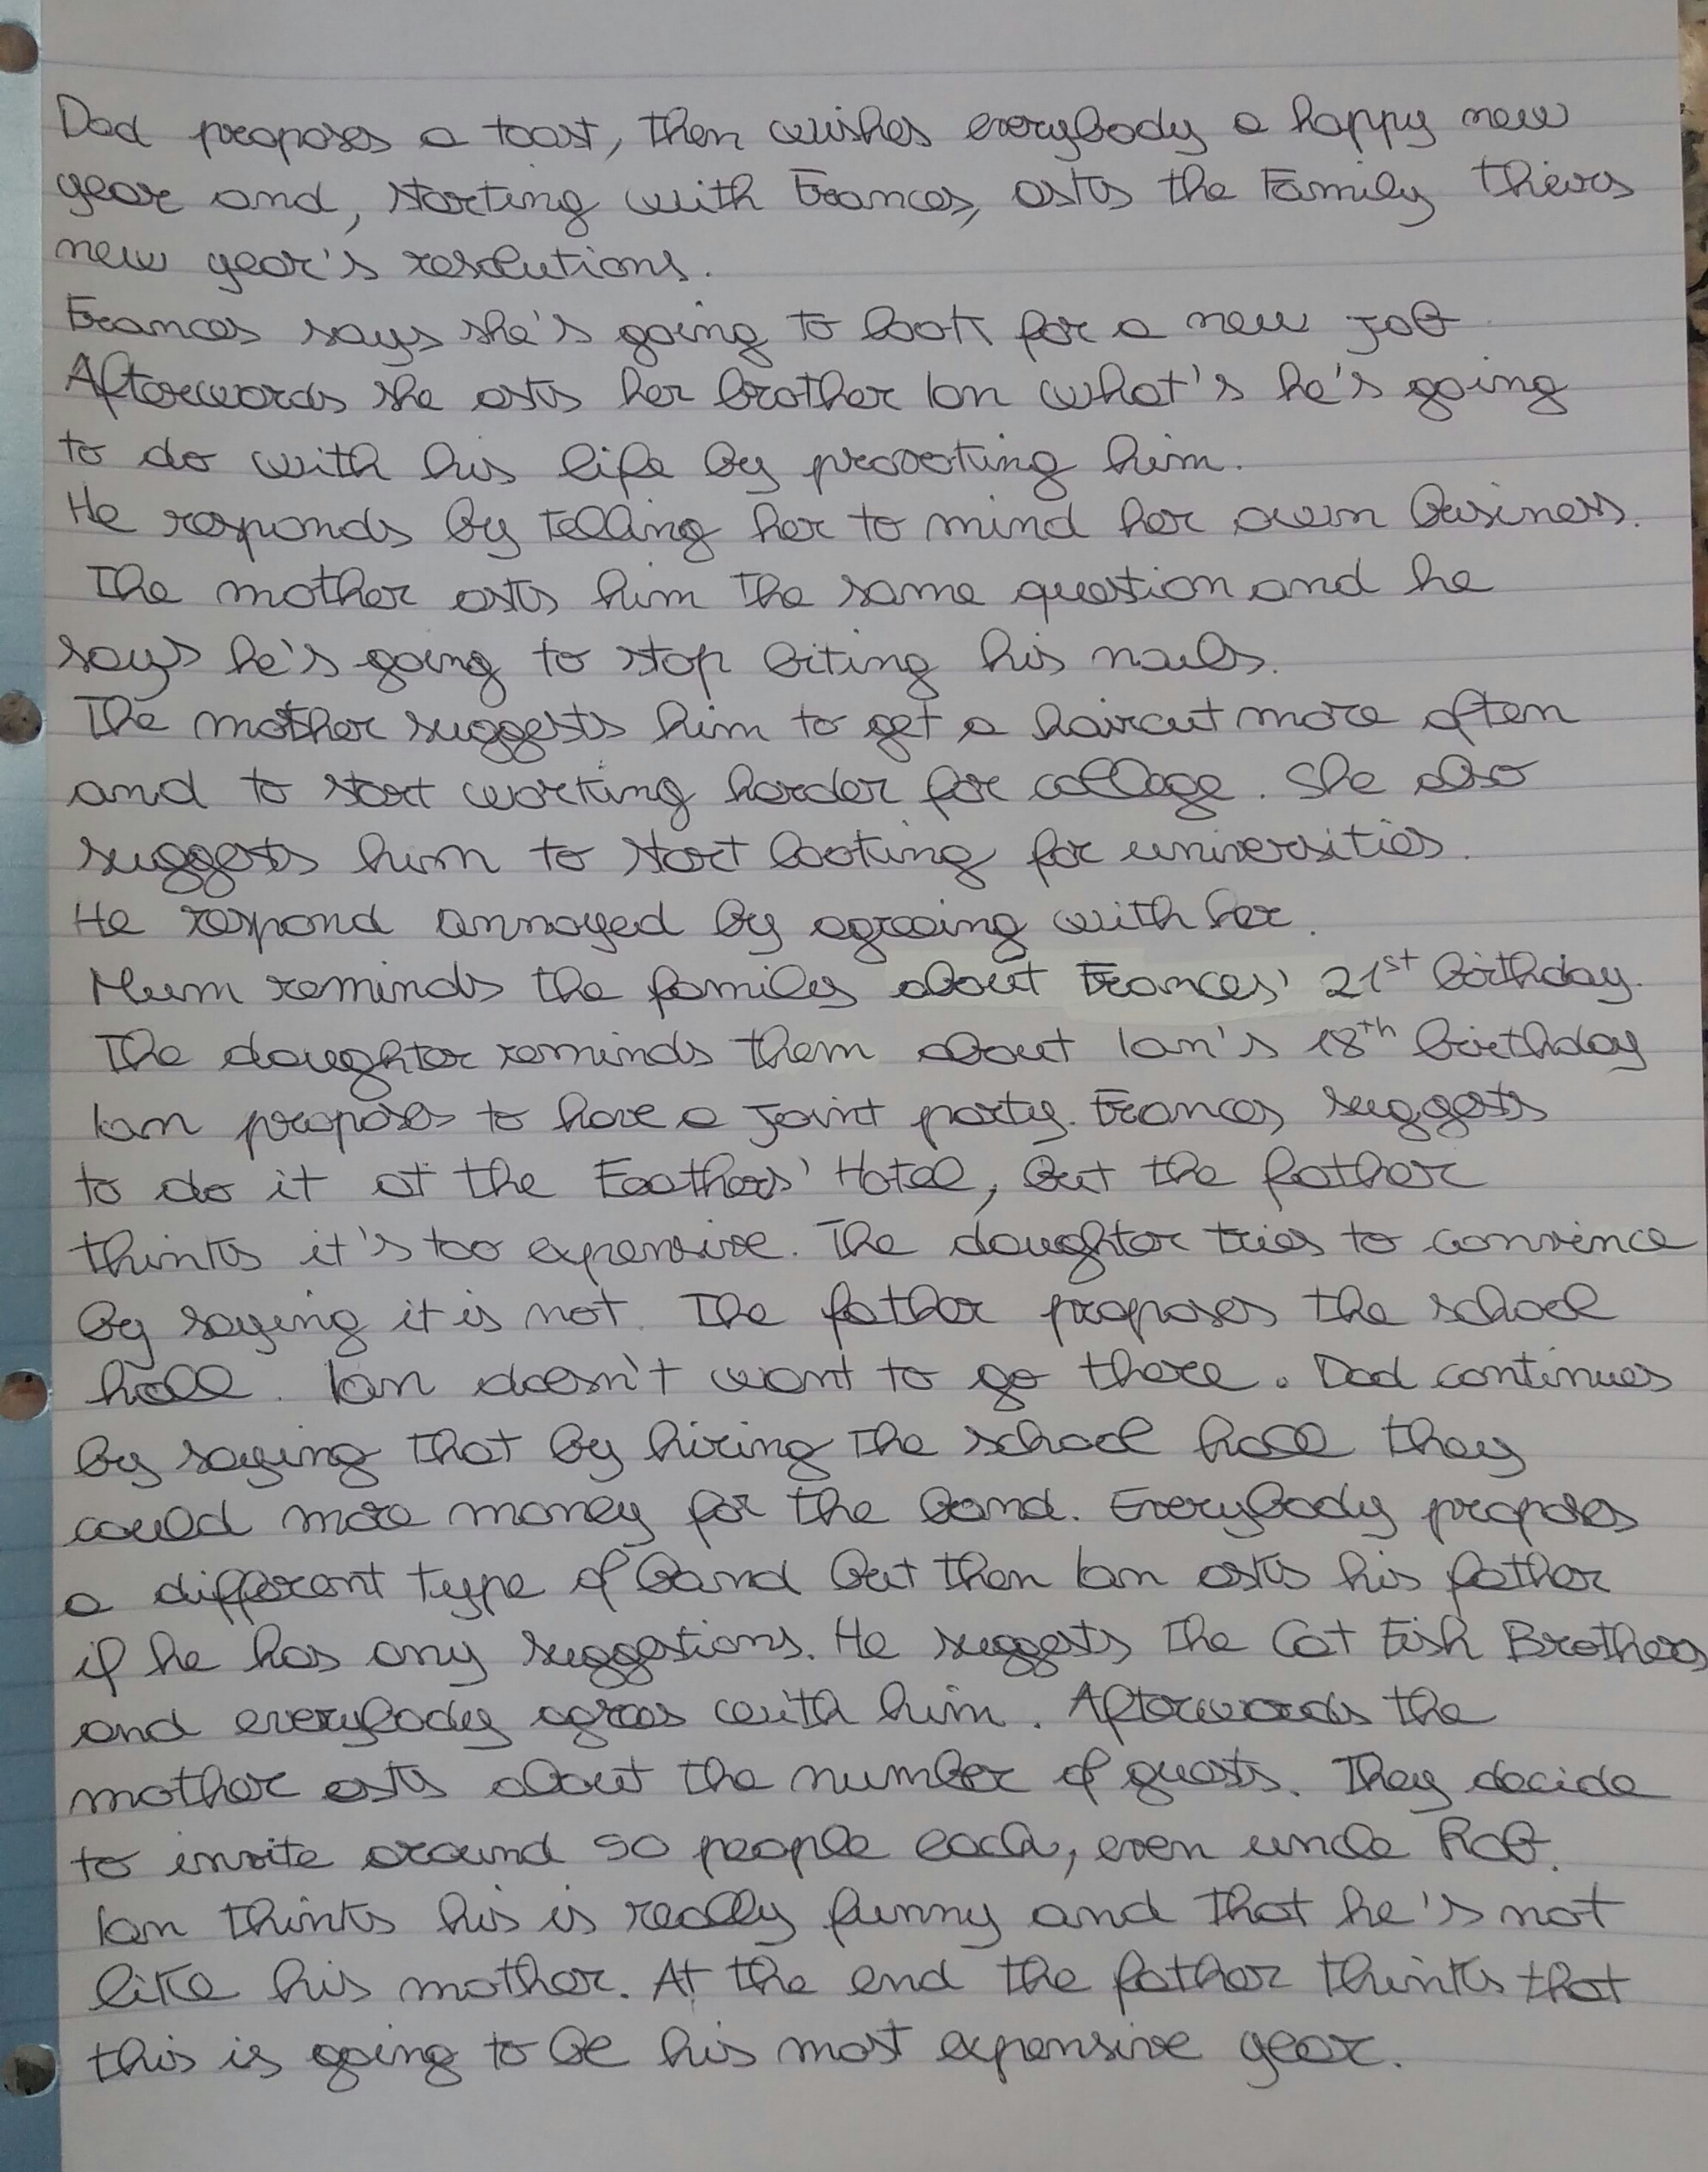 Dad proposes a toast, then wishes everybody a happy new
year and, starting with Frances, asks the Family theirs
new year's resolutions.
Frances says she's going to look for a new job
Afterwards she asks her brother Ian what's he's going
to do with his life by provoking him.
He responds by telling her to mind her own business.
The mother asks him the same question and he
says he's going to stop biting his nails.
The mother suggests him to get a haircut more often
and to start working harder for college. She also
suggests him to start looking for universities.
He respond annoyed by agreeing with her.
Mum reminds the family about Frances' 21st birthday.
The daughter reminds them about Ian's 18th birthday
Ian proposes to have a joint party. Frances suggests
to do it at the Feathers' Hotel, but the father
thinks it's too expensive. The daughter tries to convince
by saying it is not. The father proposes the school
hall. Ian doesn't want to go there. Dad continues
by saying that by hiring the school hall they
could more money for the band. Everybody proposes
a different type of band but then Ian asks his father
if he has any suggestions. He suggests the Cat Fish Brothers
and everybody agrees with him. Afterwards the
mother asks about the number of guests. They decide
to invite around 50 people each, even uncle Rob.
Ian thinks his is really funny and that he's not
like his mother. At the end the father thinks that
this is going to be his most expensive year.